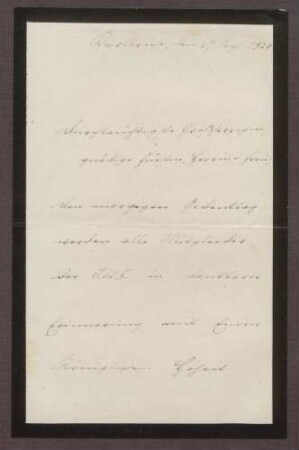 Karlsruhe, den 1920
Durchlauchtigste Großherzogin
gnädige Fürstin
Den morgigen Gedenktag
werden alle Mitglieder
der Abt. I in dankbarer
Erinnerung mit Eurer
Königlichen Hoheit